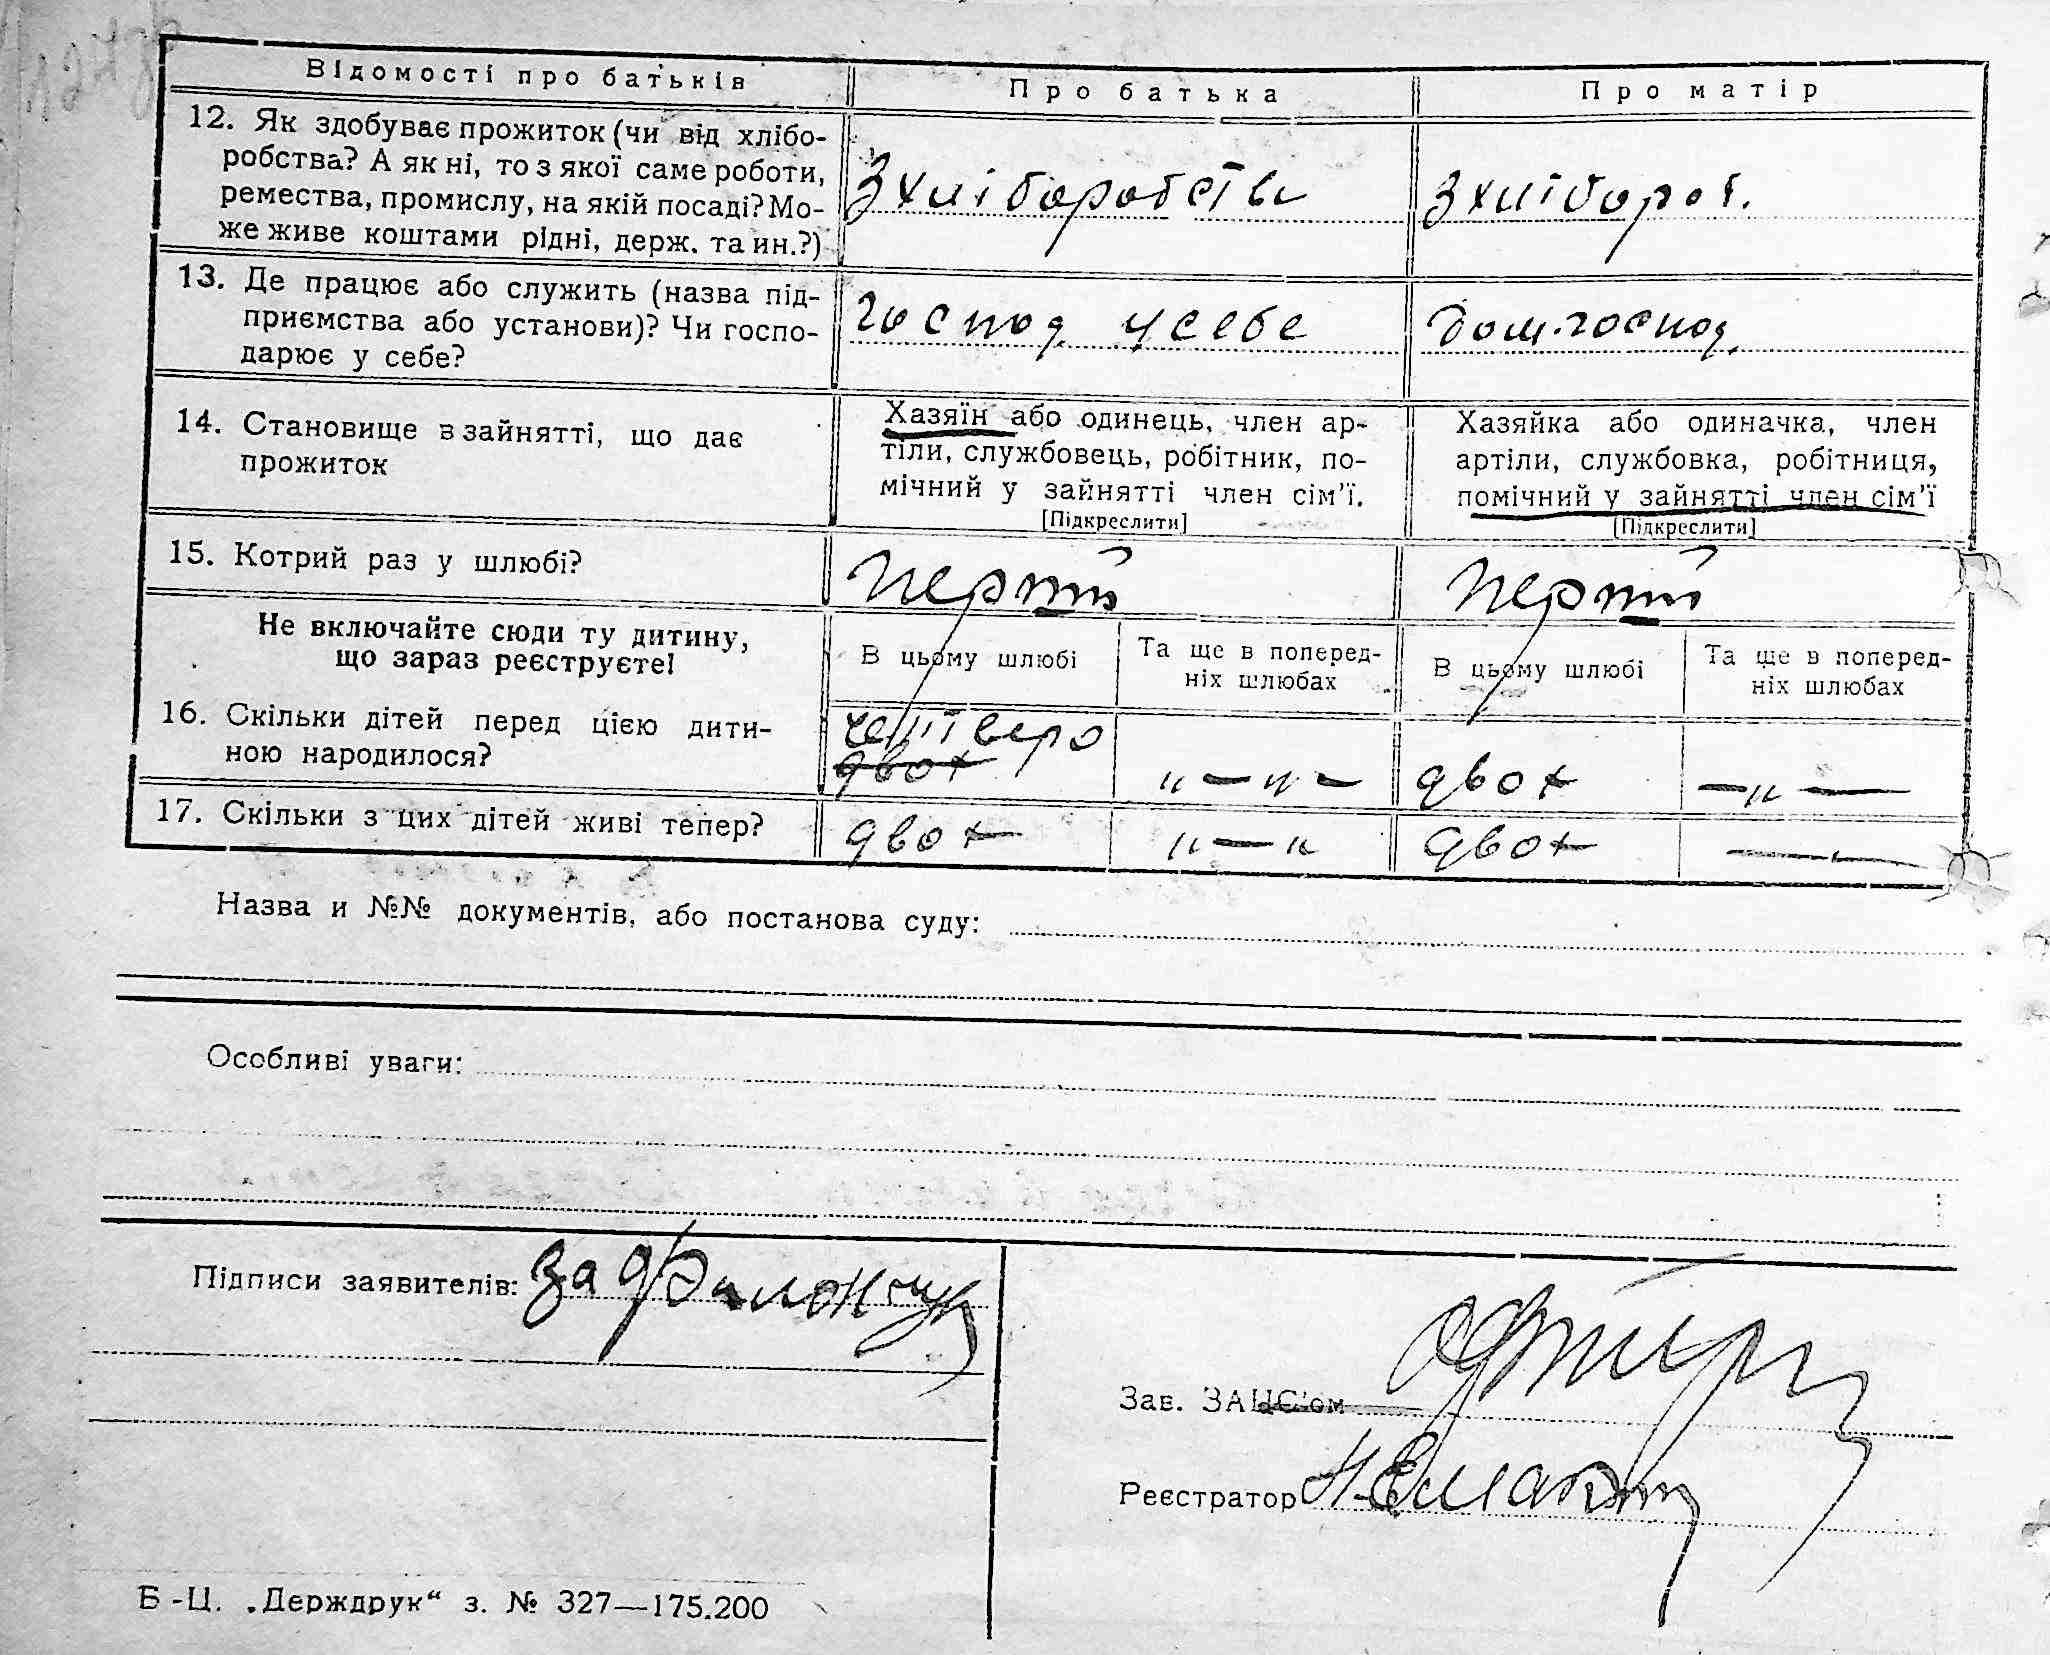 Відомості про батьків
Про батька
Про матір
12. Як здобуває прожиток (чи від хлібо-
робства? А як ні, то з якої саме роботи,
ремества, промислу, на якій посаді? Мо-
же живе коштами рідні, держ. та ин.?)
З хліборобства
З хлібороб.
13. Де працює або служить (назва під-
приємства або установи)? Чи госпо-
дарює у себе?
господ. у себе
дом. господ.
14. Становище в зайнятті, що дає
прожиток
Хазяїн або одинець, член ар-
тіли, службовець, робітник, по-
мічний у зайнятті член сім'ї.
[Підкреслити]
Хазяйка або одиначка, член
артіли, службовка, робітниця,
помічний у зайнятті член сім'ї
[Підкреслити]
15. Котрий раз у шлюбі?
перший
перший
Не включайте сюди ту дитину,
що зараз реєструєте!
В цьому шлюбі
Та ще в поперед-
ніх шлюбах
В цьому шлюбі
Та ще в поперед-
ніх шлюбах
16. Скільки дітей перед цією дити-
ною народилося?
четверо
двох
"—"—
двох
—"—
17. Скільки з цих дітей живі тепер?
двох
"—"
двох
—"—
Назва и №№ документів, або постанова суду:
Особливі уваги:
Підписи заявителів: за
Зав. ЗАЦС'ом
Реєстратор
Б-Ц. „Держдрук“ з. № 327—175.200